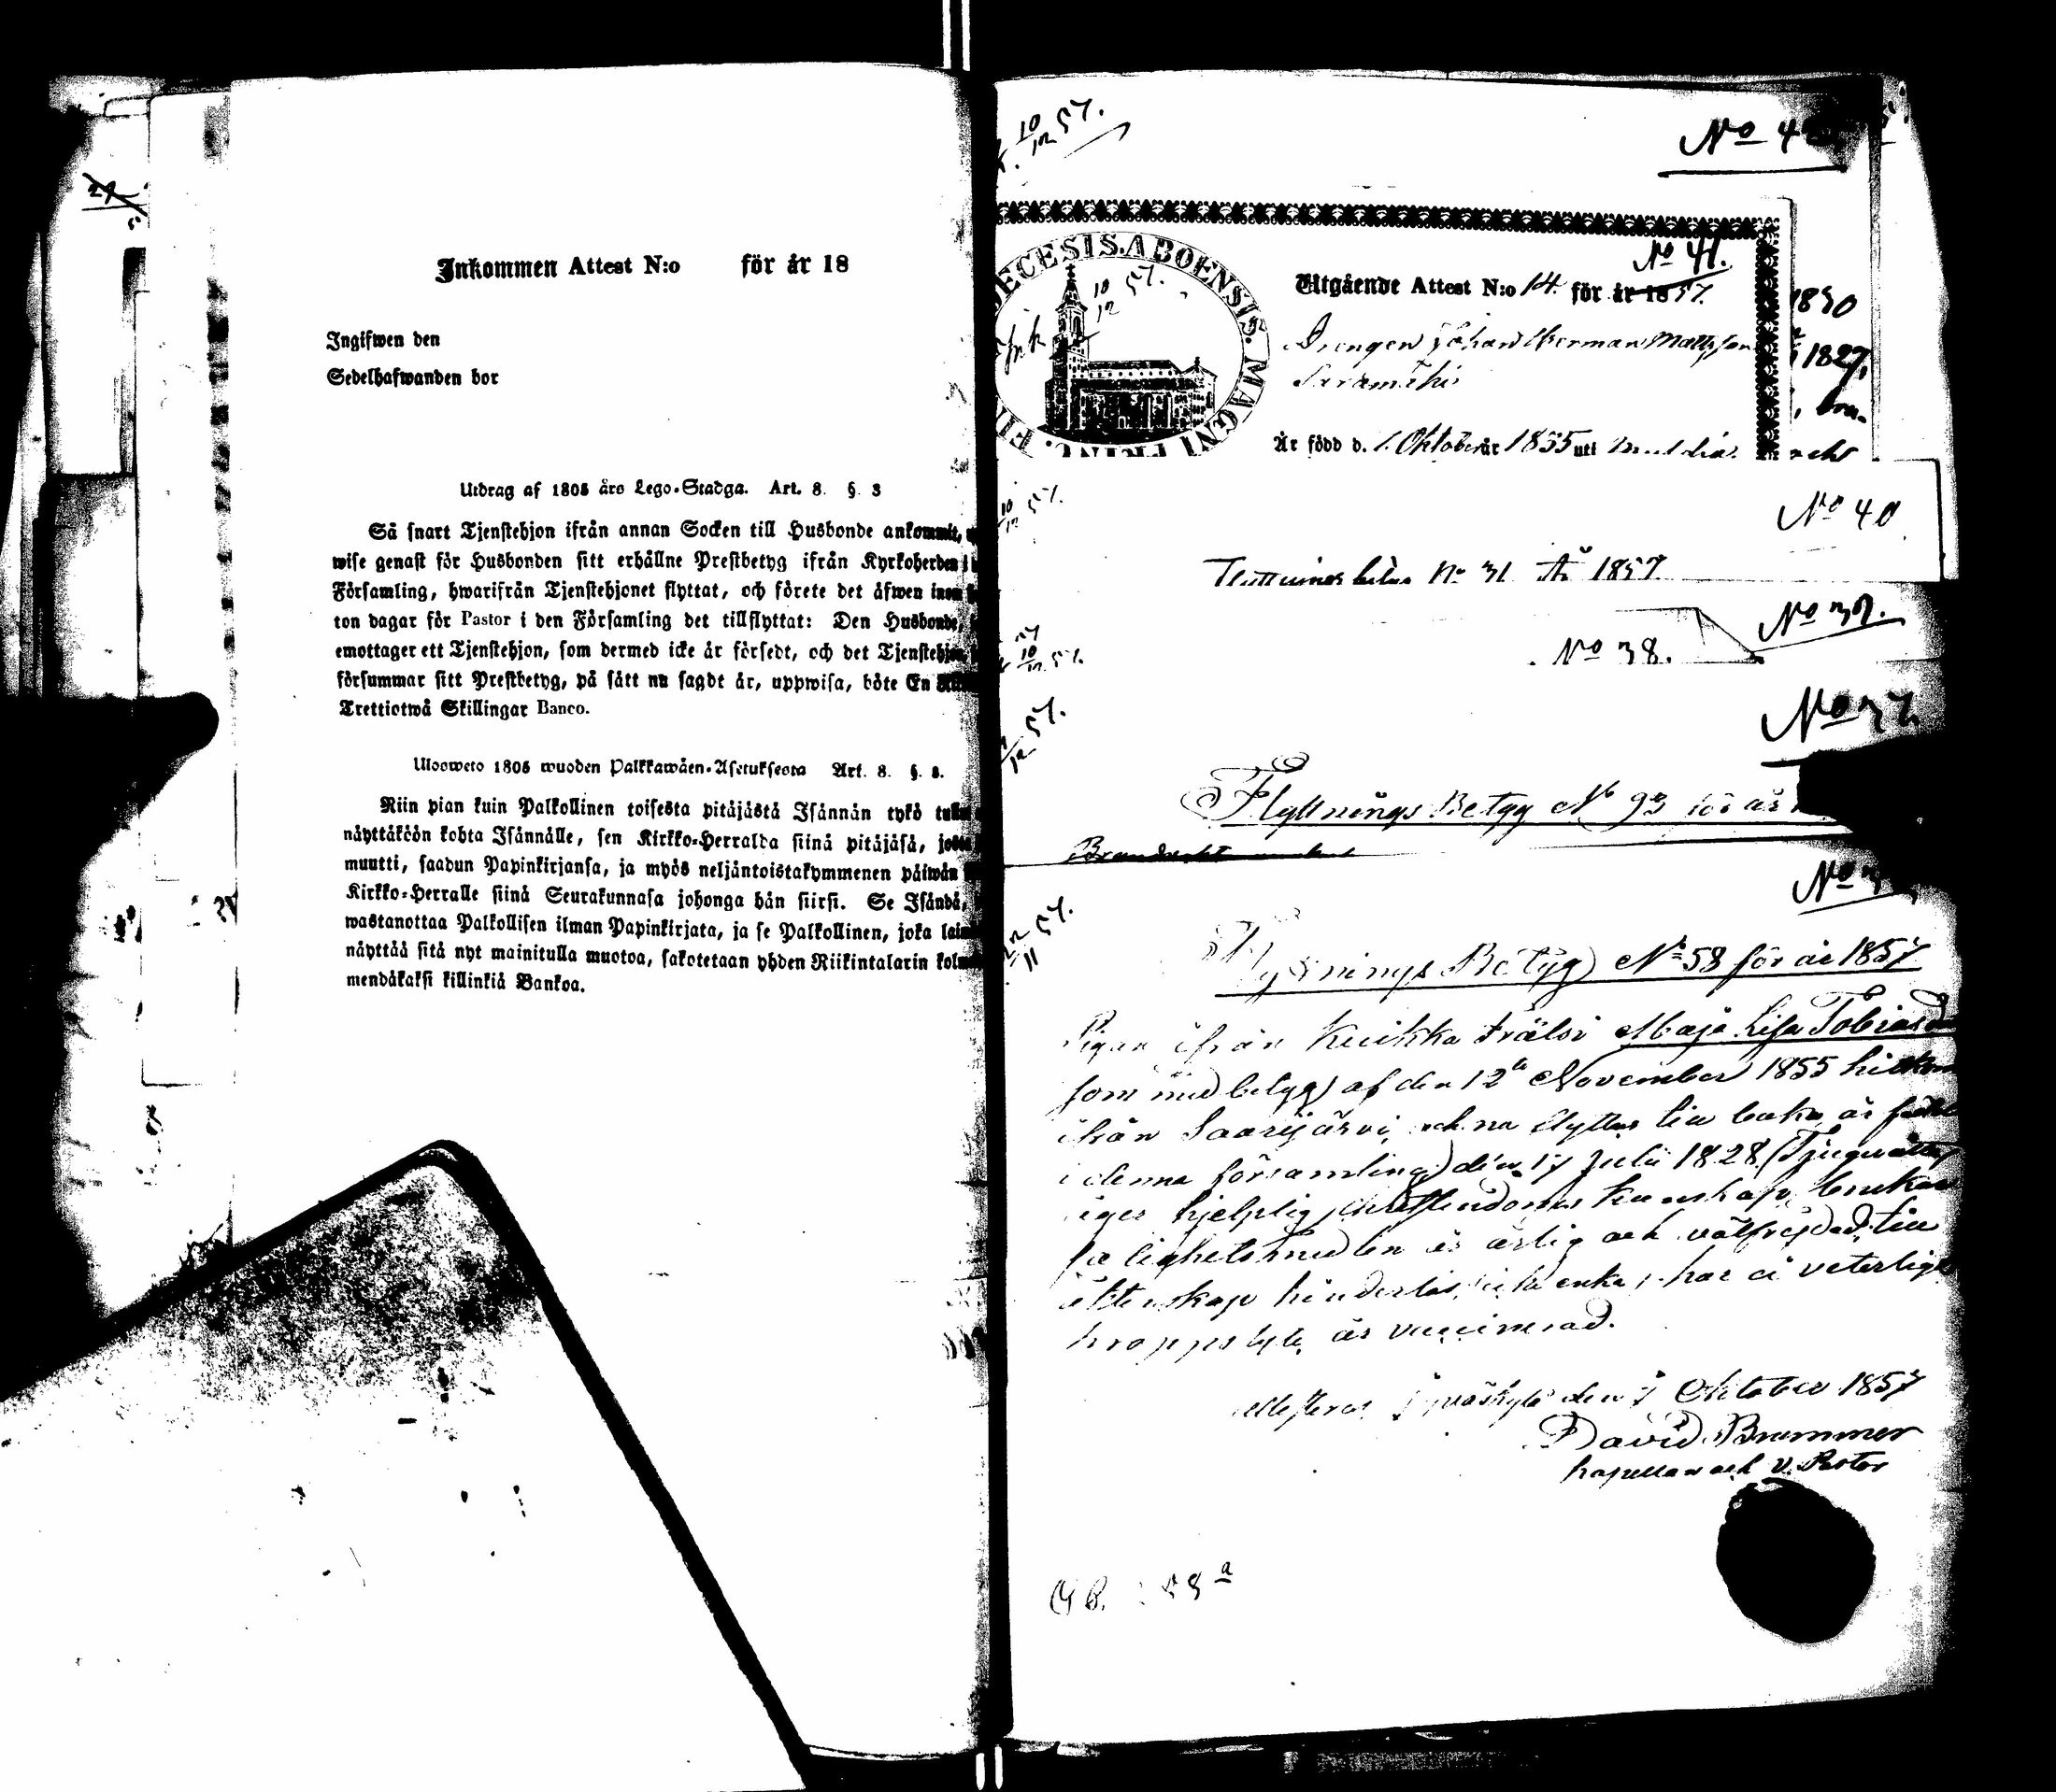 Inkommen Attest N:o för år 18
Ingifwen den
Sedelhafwanden bor
Utdrag af 1805 års Lego-Stadga. Art. 8. §. 3
Så snart Tjenstehjon ifrån annan Socken till Husbonde ankommit,
wise genast för Husbonden sitt erhållne Prestbetyg ifrån Kyrkoherden i
Församling, hwarifrån Tjenstehjonet flyttat, och förete det äfwen inom
ton dagar för Pastor i den Församling det tillflyttat: Den Husbonde,
emottager ett Tjenstehjon, som dermed icke är försedt, och det Tjenstehjon,
försummar sitt Prestbetyg, på sätt nu sagdt är, uppwisa, böte En
Trettiotwå Skillingar Banco.
Ulosweto 1805 wuoden Palkkawäen-Asetuksesta Art. 8. §. 3.
Niin pian kuin Palkollinen toisesta pitäjästä Isännän tykö
näyttäköön kohta Isännälle, sen Kirkko-Herralda siinä pitäjäsä,
muutti, saadun Papinkirjansa, ja myös neljäntoistakymmenen päiwän
Kirkko-Herralle siinä Seurakunnasa johonga hän siirsi. Se Isändä,
wastanottaa Palkollisen ilman Papinkirjata, ja se Palkollinen, joka
näyttää sitä nyt mainitulla muotoa, sakotetaan yhden Riikintalarin
mendäkaksi killinkiä Bankoa.
10/12 57.
No 4
ECESIS. ABOENSIS. MAGNI PRINC. FI
10/12 57.
No 41.
Utgående Attest N:o 14. för år 1857.
Drengen Johan Herman Mattsson
Är född d. 1. Oktober år 1835 uti
1830
1827,
10/12 57.
No 40
No 31 År 1857.
No 39.
No 38.
10/12 57.
No 37.
/12 57.
Flyttnings Betyg No 93 för år
No
22/11 57.
Flyttnings Betyg No 58 för år 1857
Pigan ifrån Kuikka frälsi Maja Lisa Tobiasd
som med betyg af den 12te November 1855 hitkom
ifrån Saarijärvi, och nu flyttar tillbaka, är född
i denna församling den 17 Julii 1828 (Tjuguåtta)
eger hjelplig christendoms kunskap, brukar
salighetsmedlen är ärlig och välfrejdad, till
äktenskap hinderlös, icke enka, har ei veterligt
kroppslyte, är vaccinerad.
Attesteras Jyväskylä den 7 Oktober 1857
David Brummer
kapellan och v. Pastor
58 a